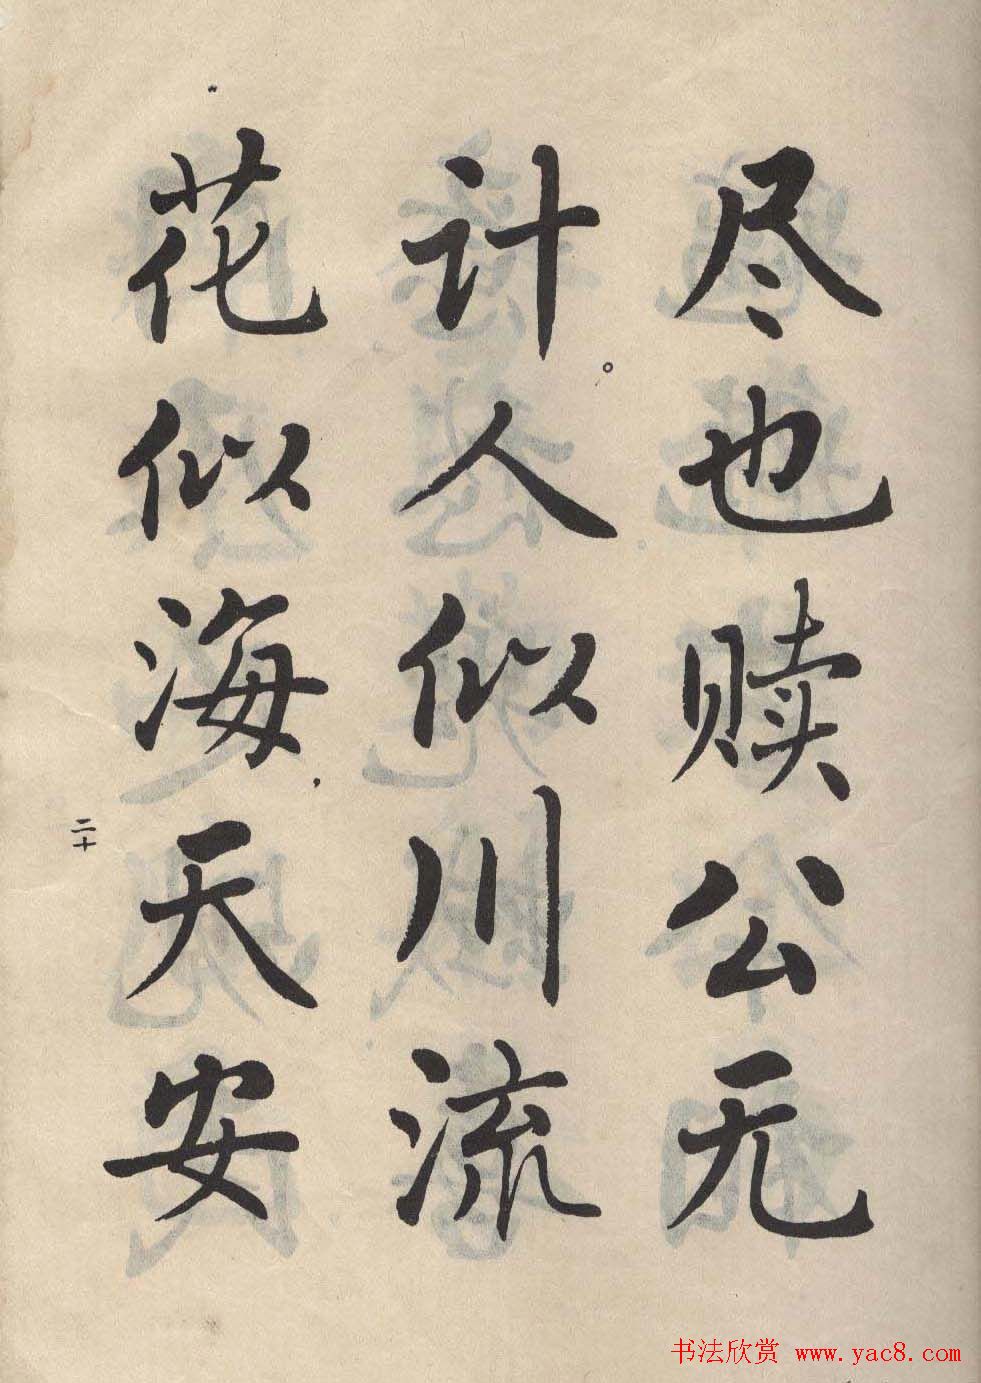 尽也赎公无
计。人似川流
花似海，天安
二十
书法欣赏 www.yac8.com